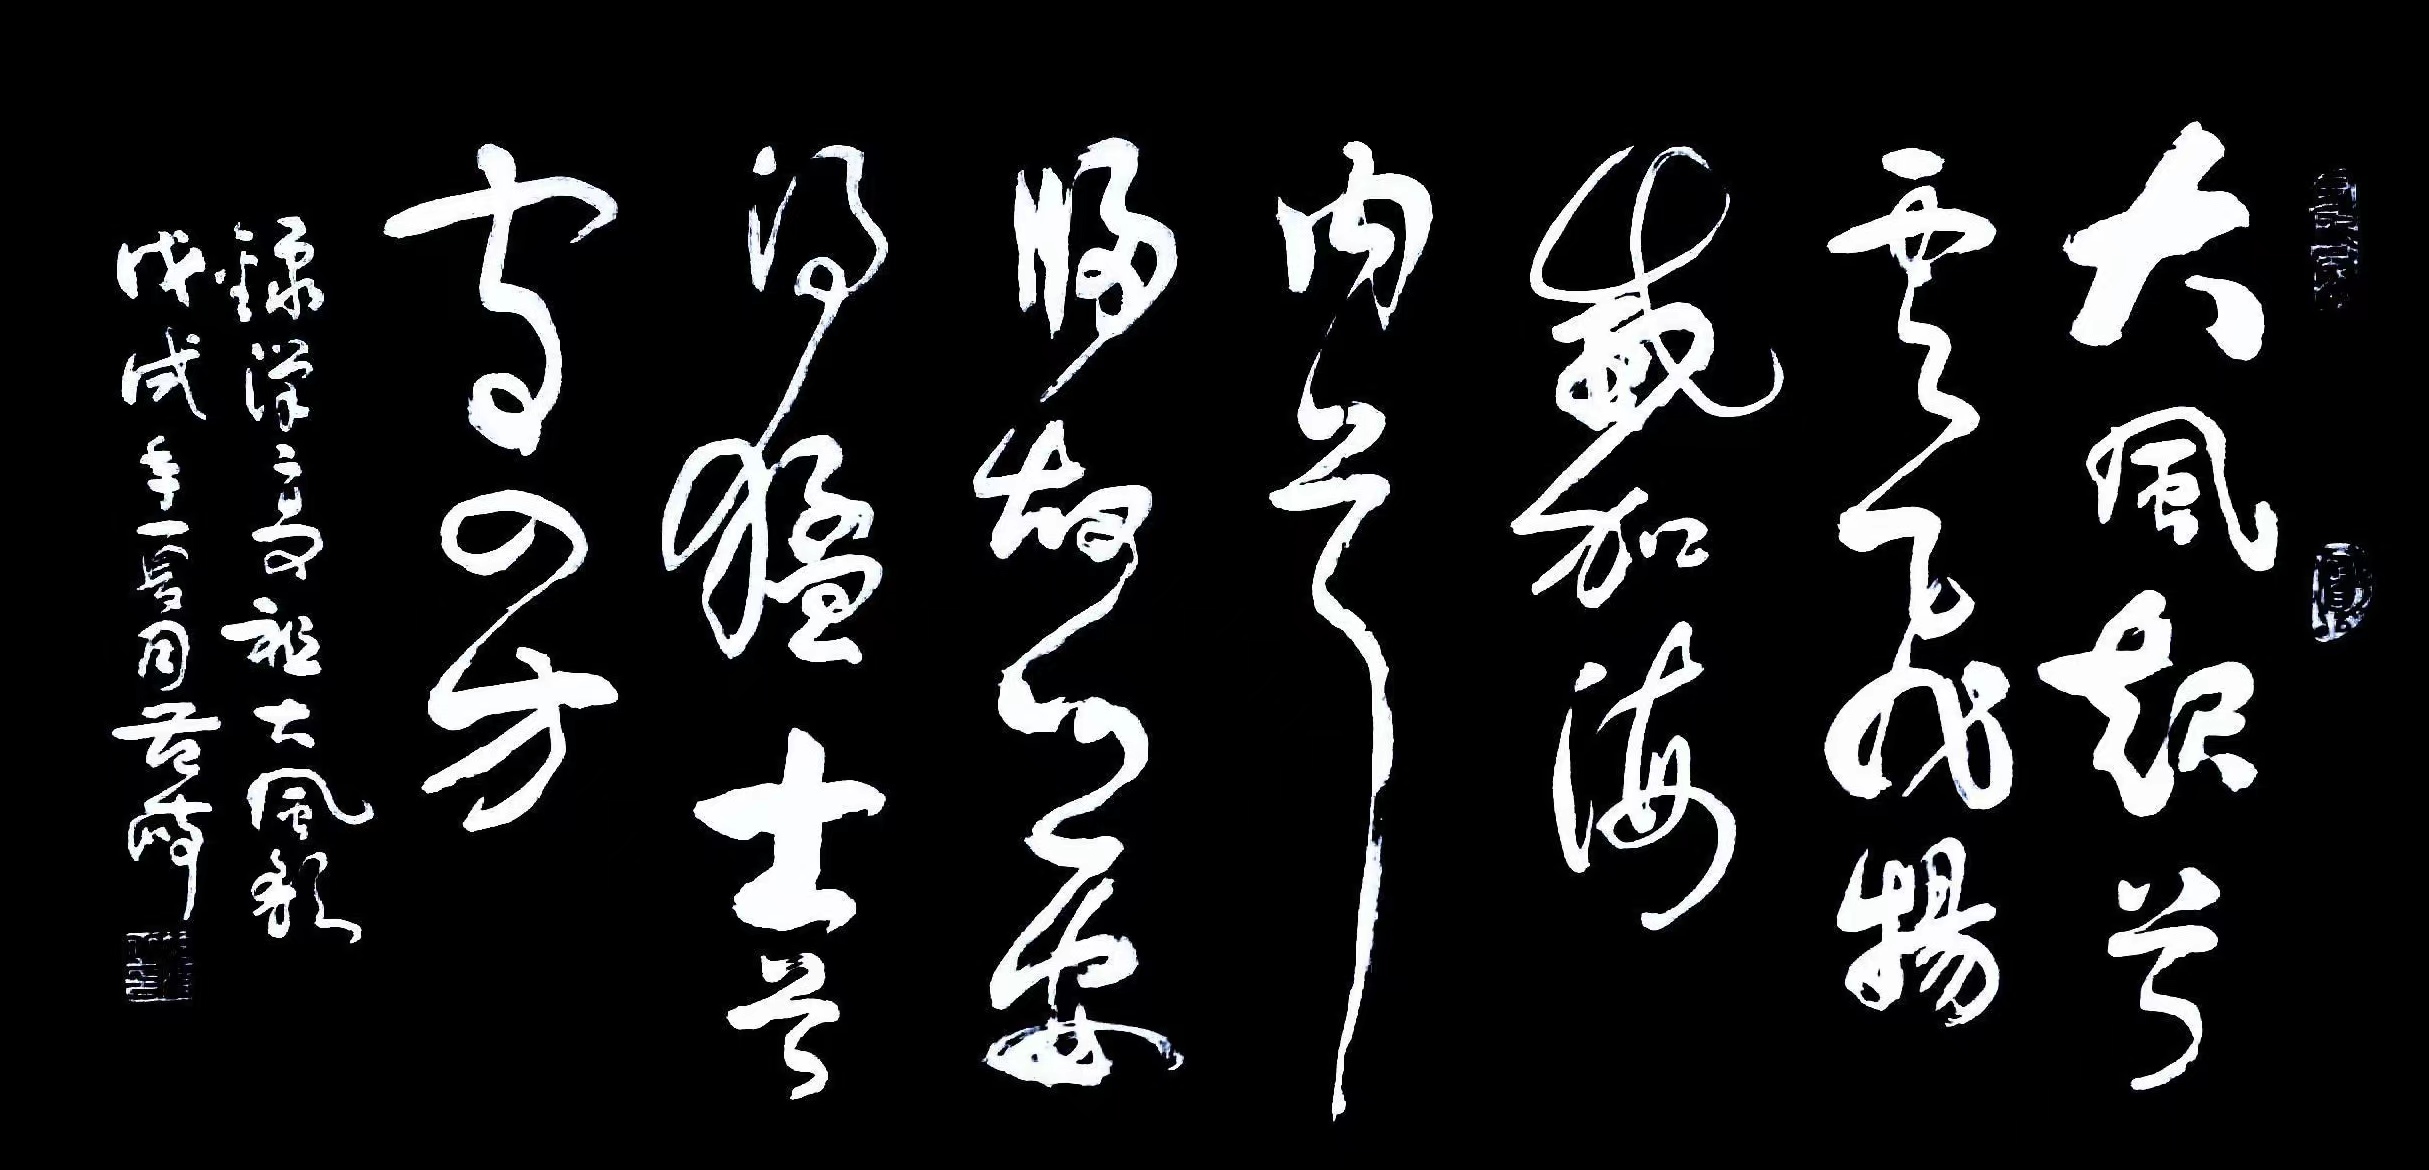 大風起兮
雲飛揚
威加海
内兮
歸故鄉安
得猛士兮
守四方
録漢高祖大風歌
戊戌年一月